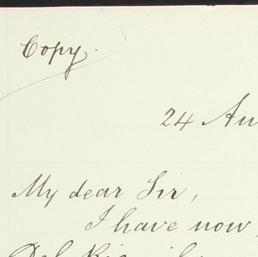 Copy.
24 Au
My dear Sir,
I have now